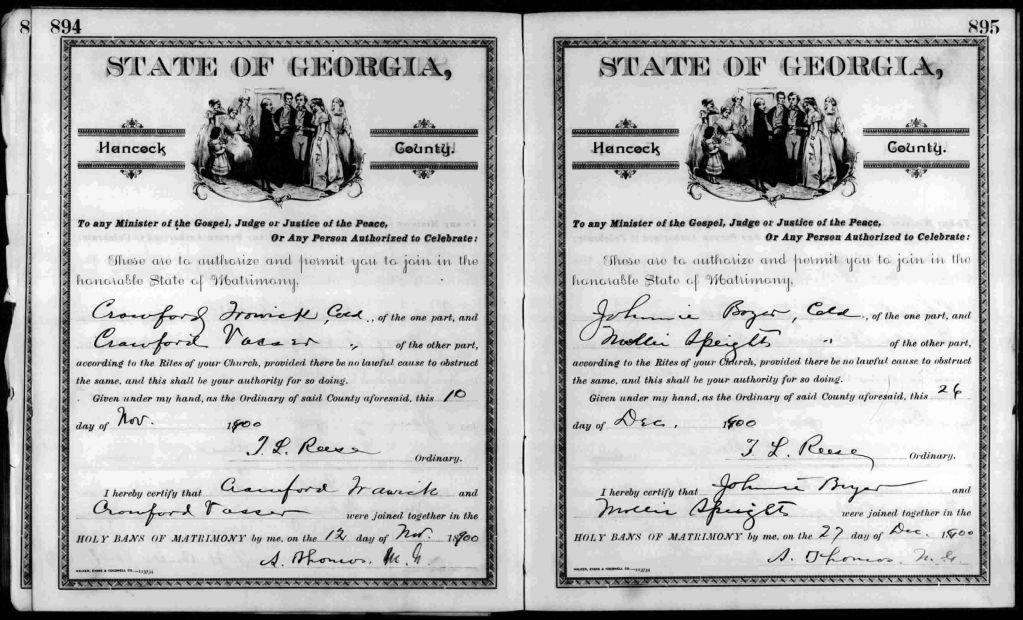 8
894
STATE OF GEORGIA,
Hancock County.
To any Minister of the Gospel, Judge or Justice of the Peace,
Or Any Person Authorized to Celebrate:
These are to authorize and permit you to join in the
honorable State of Matrimony,
Crawford Trawick, Cold., of the one part, and
Crawford Vasser " of the other part,
according to the Rites of your Church, provided there be no lawful cause to obstruct
the same, and this shall be your authority for so doing.
Given under my hand, as the Ordinary of said County aforesaid, this 10
day of Nov. 1900
T. L. Reese Ordinary.
I hereby certify that Crawford Trawick and
Crawford Vasser were joined together in the
HOLY BANS OF MATRIMONY by me, on the 12 day of Nov. 1900
A. Thomas. M. G.
WALKER, EVANS & COGSWELL CO.
895
STATE OF GEORGIA,
Hancock County.
To any Minister of the Gospel, Judge or Justice of the Peace,
Or Any Person Authorized to Celebrate:
These are to authorize and permit you to join in the
honorable State of Matrimony,
Johnnie Boyer, Cold., of the one part, and
Mollie Speights " of the other part,
according to the Rites of your Church, provided there be no lawful cause to obstruct
the same, and this shall be your authority for so doing.
Given under my hand, as the Ordinary of said County aforesaid, this 26
day of Dec. 1900
T. L. Reese Ordinary.
I hereby certify that Johnnie Boyer and
Mollie Speights were joined together in the
HOLY BANS OF MATRIMONY by me, on the 27 day of Dec. 1900
A. Thomas. M. G.
WALKER, EVANS & COGSWELL CO.